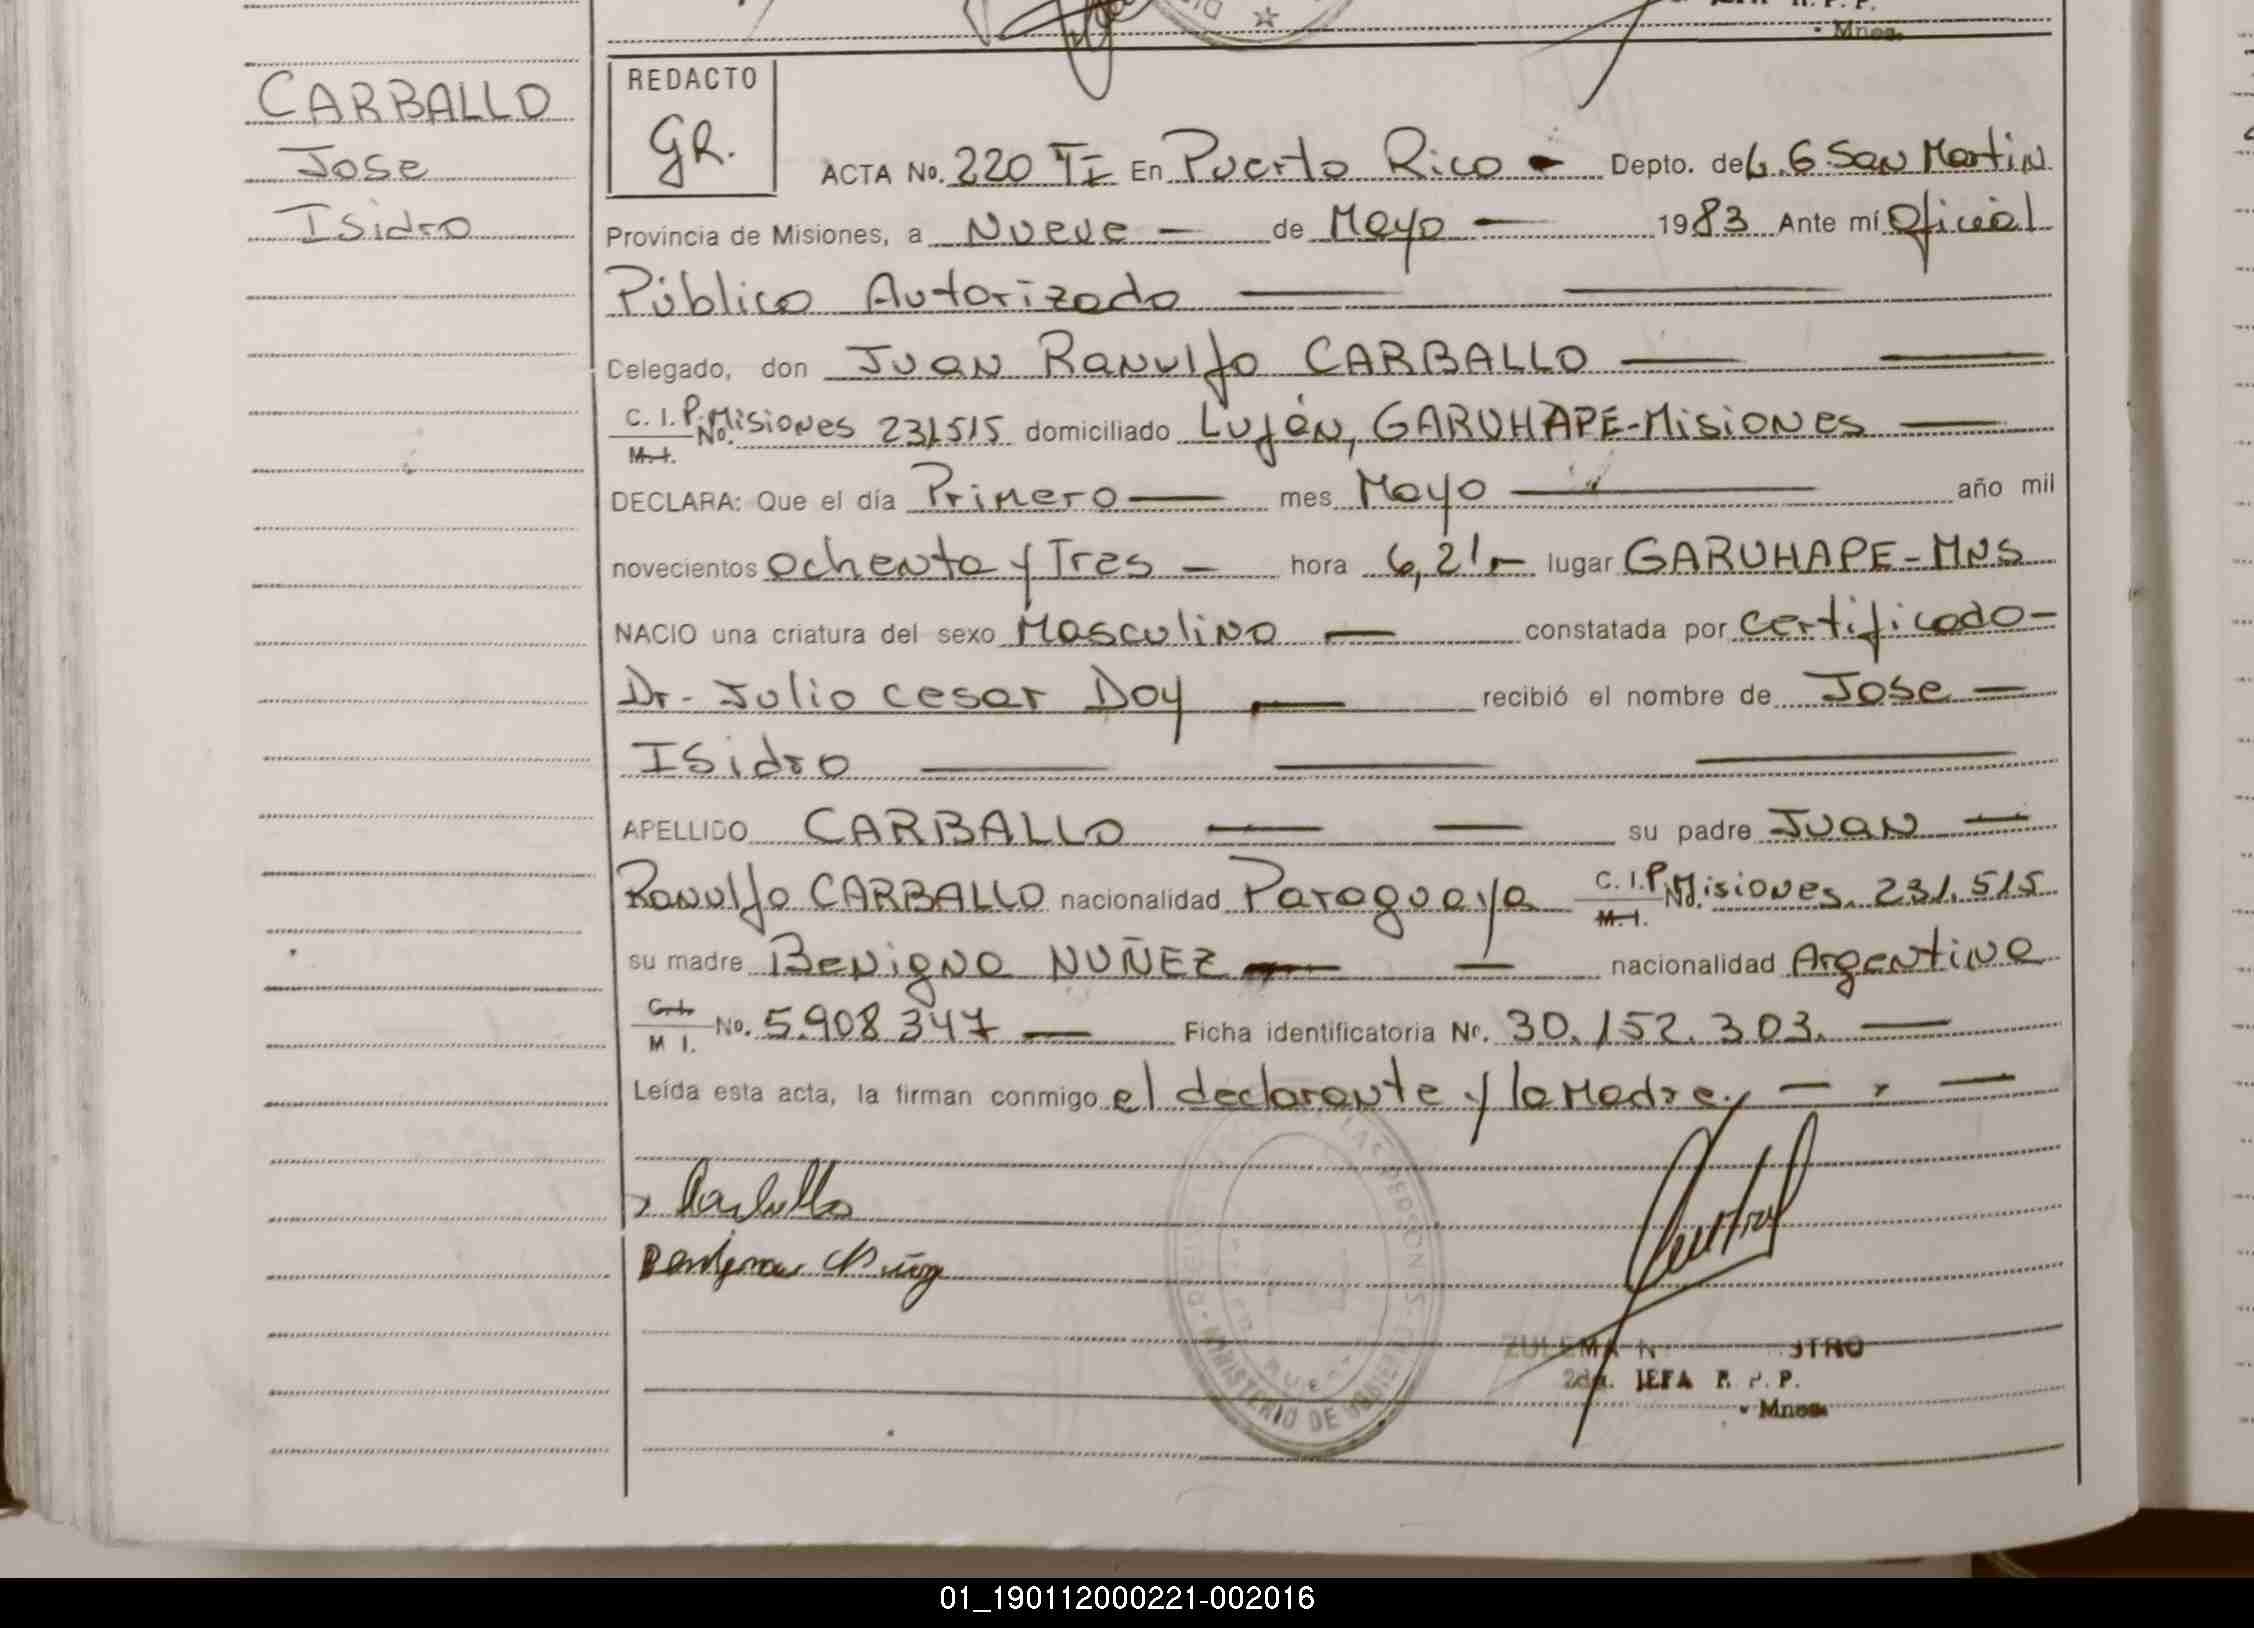 Mnes.
CARBALLO
Jose
Isidro
REDACTO
GR.
ACTA No. 220 TI En Puerto Rico - Depto. de L. G. San Martin
Provincia de Misiones, a Nueve - de Mayo - 1983 Ante mí Oficial
Público Autorizado
Celegado, don Juan Ranulfo CARBALLO
C. I. P. Misiones No. 231515 domiciliado Luján, GARUHAPE-Misiones
M. I.
DECLARA: Que el día Primero mes Mayo año mil
novecientos ochenta y Tres - hora 6,21 - lugar GARUHAPE-MNS
NACIO una criatura del sexo Masculino - constatada por certificado-
Dr. Julio Cesar Doy recibió el nombre de Jose -
Isidro
APELLIDO CARBALLO su padre Juan -
Ranulfo CARBALLO nacionalidad Paraguaya C. I. P. Misiones No. 231.515
M. I.
su madre Benigna NUÑEZ - nacionalidad Argentina
C. I.
M I. No. 5.908.347 - Ficha identificatoria Nº. 30.152.303. -
Leída esta acta, la firman conmigo el declarante y la Madre, -
Carballo
Benigna Nuñez
LAS PERSONAS
MINISTERIO DE GOBIERNO
ZULEMA N
2da. JEFA R. P. P.
Mnes.
01_190112000221-002016